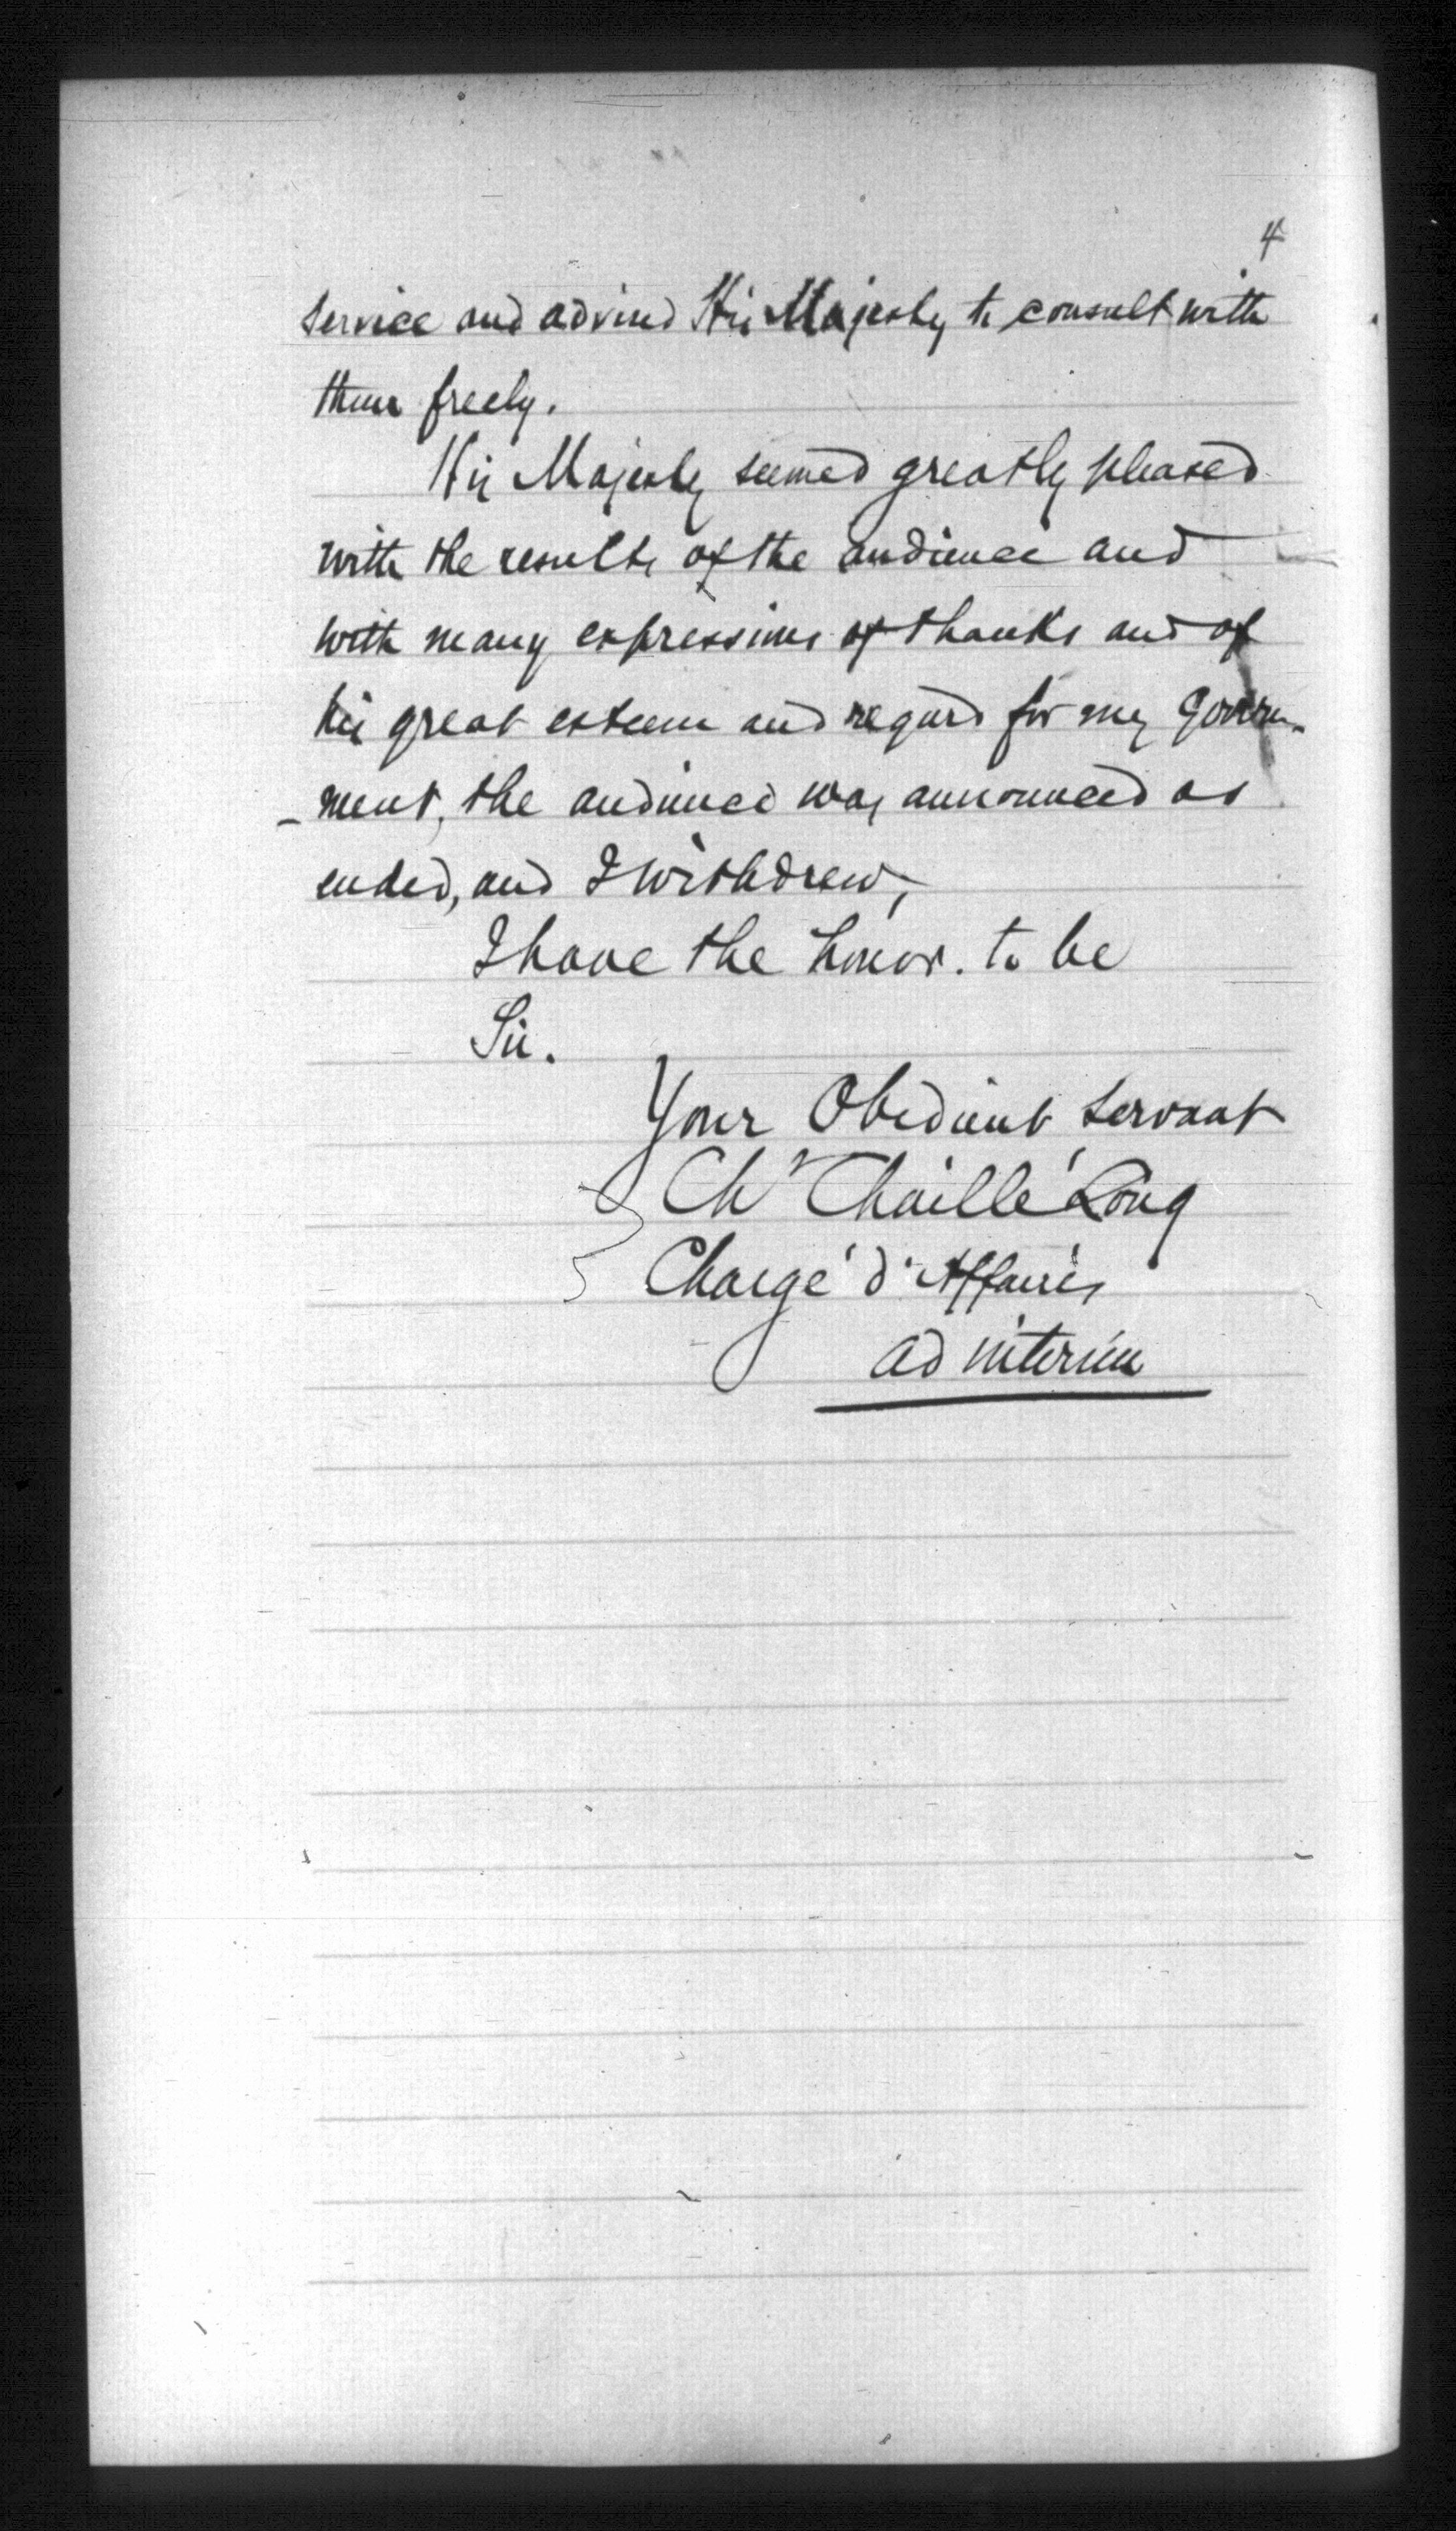 4
service and advised His Majesty to consult with
them freely.
His Majesty seemed greatly pleased
with the results of the audience and
with many expressions of thanks and of
his great esteem and regard for my Govern-
-ment, the audience was announced as
ended, and I withdrew,
I have the honor. to be
Sir.
Your Obedient Servant
Ch Chaillé Long
Chargé d'Affaires
ad interim